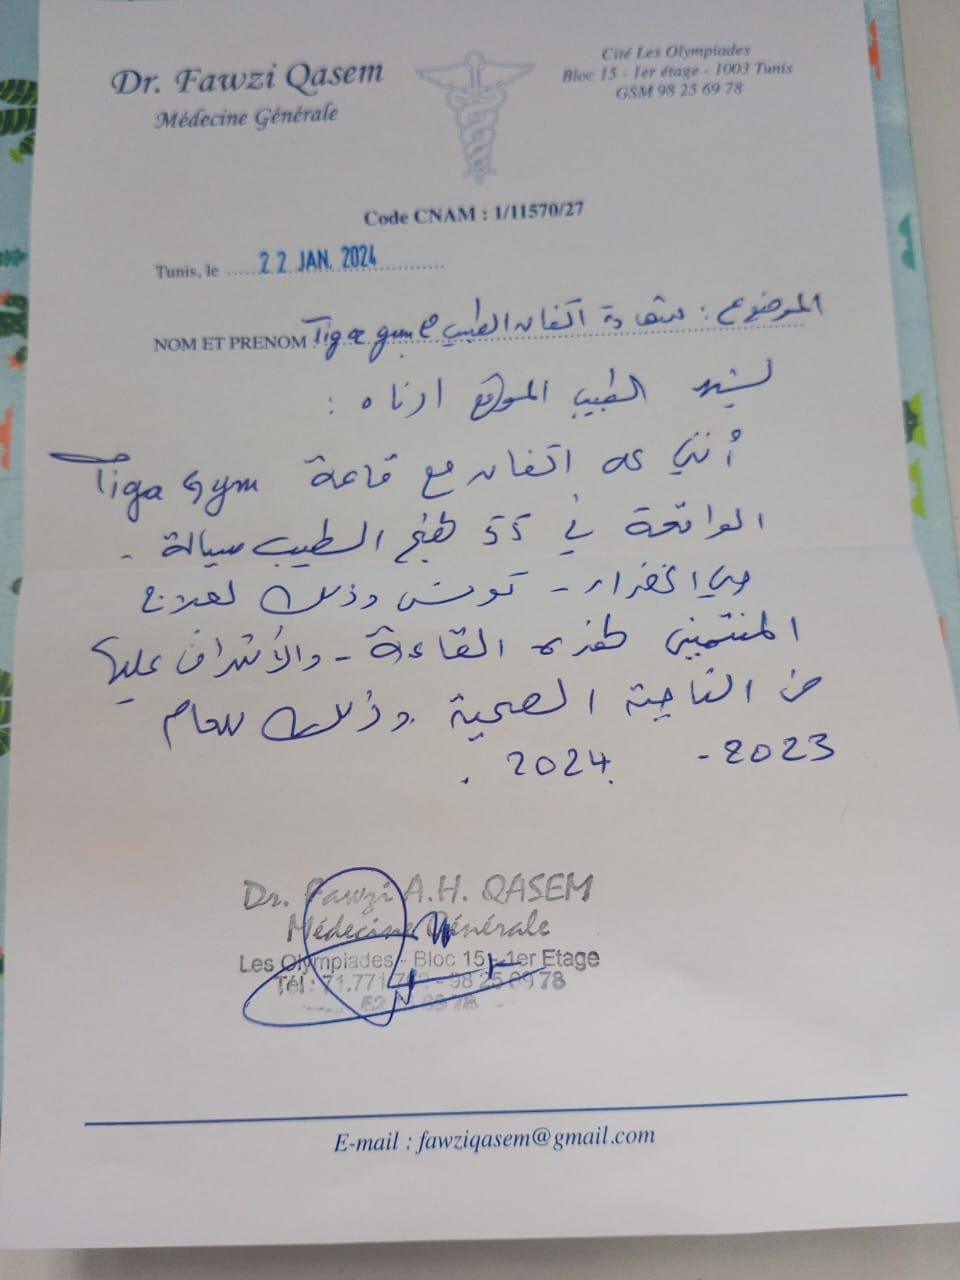 Dr. Fawzi Qasem
Médecine Générale
Cité Les Olympiades
Bloc 15 - 1er étage - 1003 Tunis
GSM 98 25 69 78
Code CNAM : 1/11570/27
Tunis, le ..... 22 JAN. 2024
NOM ET PRENOM
الموضوع : شهادة اتفاق الطبيب مع Tiga gym
يشهد الطبيب الموقع أدناه :
أنني على اتفاق مع قاعة Tiga Gym
الواقعة في 55 نهج الطيب سيالة -
حي الخضراء - تونس وذلك لعلاج
المنتمين لهذه القاعة - والأشراف عليها
من الناحية الصحية . وذلك للعام
2023 - 2024 .
Dr. Fawzi A.H. QASEM
Médecine Générale
Les Olympiades - Bloc 15 - 1er Etage
Tél : 71.771
E-mail : fawziqasem@gmail.com